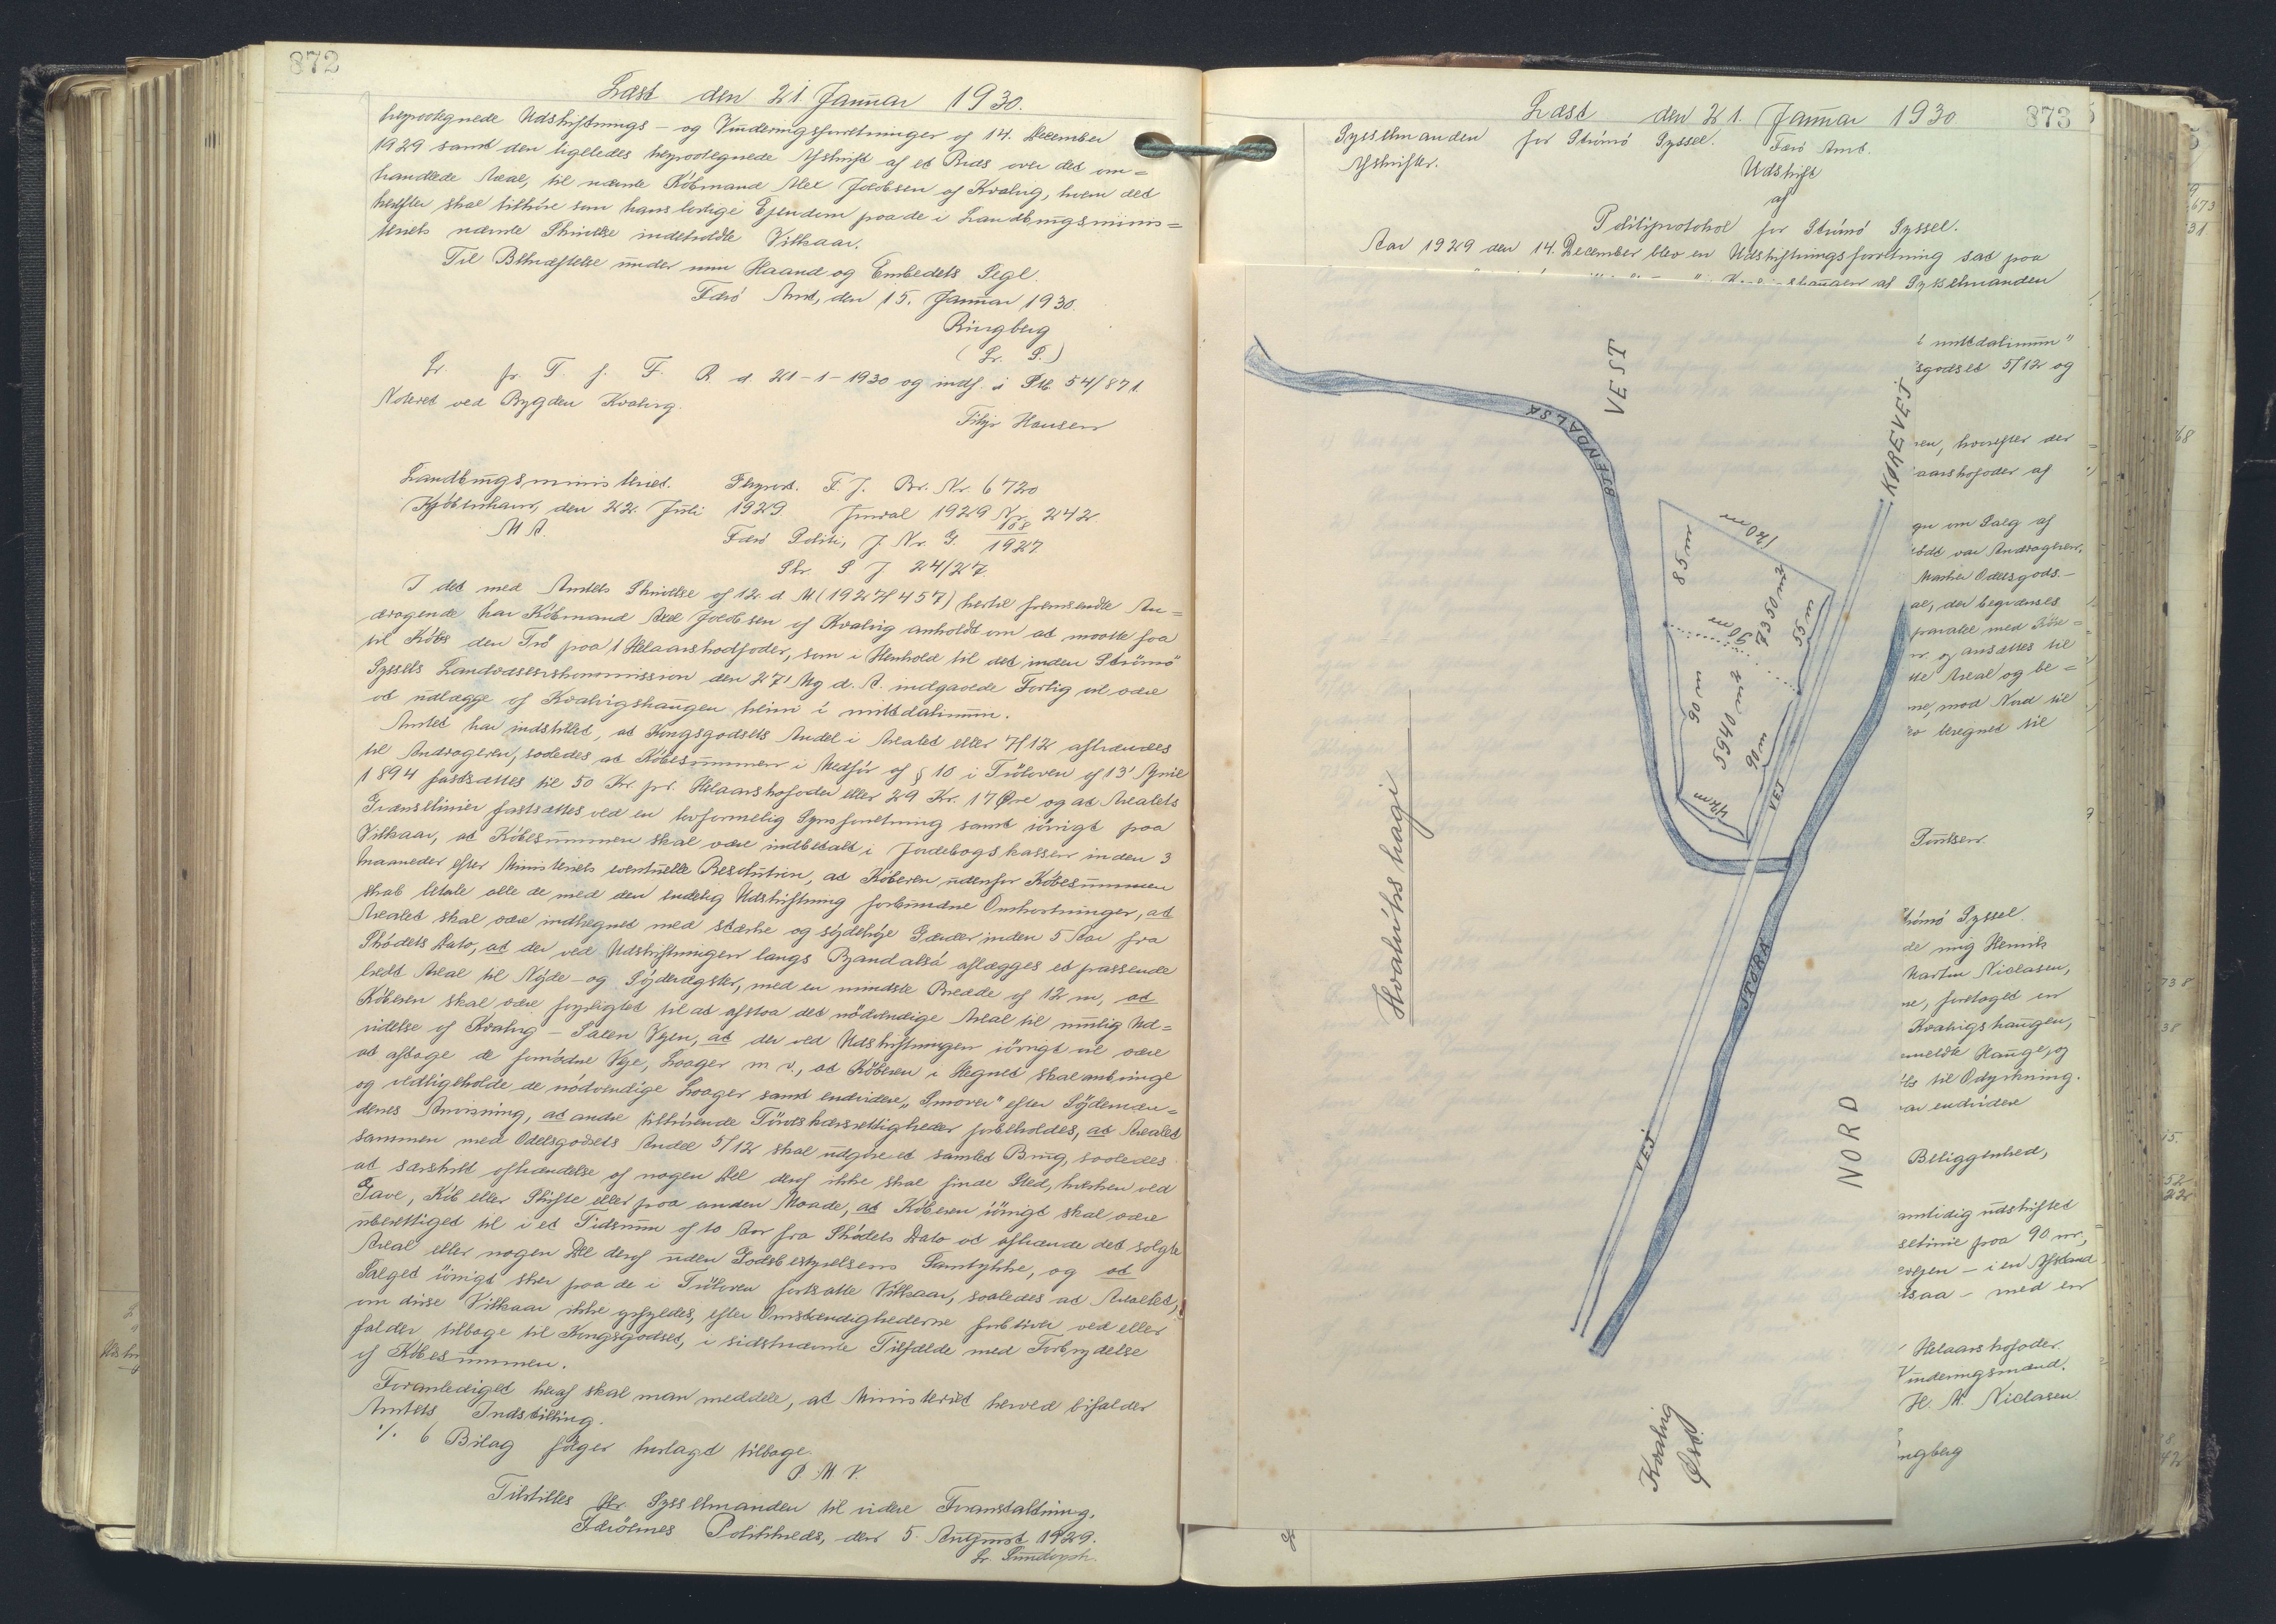 872
Læst den 21. Januar 1930.
Udskiftnings- og Vurderingsforretninger af 14. December
1929 samt den ligeledes Afskrift af et Rids over det om=
handlede Areal, til nævnte Købmand Alex Joensen af Kvalvig, hvem det
herefter skal tilhøre som hans lovlige Ejendom paa de i Landbrugsminis=
teriets nævnte Skrivelse indeholdte Vilkaar.
Til Bekræftelse under min Haand og Embedets Segl.
Færø Amt, den 15. Januar 1930.
Ringberg
(L. S.)
f. T. f. F. R. d. 21-1-1930 og indf. i 54/871
Noteret ved Bygden Kvalvig.
Hansen
Landbrugsministeriet. F. J. Br. Nr. 6720
København, den 22. Juli 1929. Journal 1929 Nr. 242
Færø Politi, J. Nr. G. 108/1927
Str. S J 24/27
I det med Amtets Skrivelse af 12. d. M (1927/457) hertil fremsendte An=
dragende har Købmand Alex Joensen af Kvalvig anholdt om at maatte faa
til Købs den Trø paa 1 Helaarskofoder, som i Henhold til det inden Strømø
Syssels Landvæsenskommission den 27' Maj d. A. indgaaede Forlig vil være
at udlægge af Kvalvigshaugen heimi í mittdalinum.
Amtet har indstillet, at Kongsgodsets Andel i Arealet eller 7/12 afhændes
til Andrageren, saaledes at Købesummen i Medfør af § 10 i Trøloven af 13' April
1894 fastsættes til 50 Kr. pr. Helaarskofoder eller 29 Kr. 17 Øre og at Arealets
Grænselinier fastsættes ved en lovformelig Synsforretning samt iøvrigt paa
Vilkaar, at Købesummen skal være indbetalt i Jordebogskassen inden 3
Maaneder efter Ministeriets eventuelle Resolution, at Køberen udenfor Købesummen
skal betale alle de med den endelig Udskiftning forbundne Omkostninger, at
Arealet skal være indhegnet med stærke og sydelige Gærder inden 5 Aar fra
Skødets Dato, at der ved Udskiftningen langs Byandalsá aflægges et passende
bredt Areal til Nyde- og Sydrægster, med en mindste Bredde af 12 m, at
Køberen skal være forpligtet til at afstaa det nødvendige Areal til mulig Ud=
videlse af Kvalvig - Saxen Vejen, at der ved Udskiftningen iøvrigt vil være
at aftage de fornødne Veje, Laager m. v., at Køberen i Hegnet skal anbringe
og vedligeholde de nødvendige Laager samt endvidere "Smover" efter Sydemæn=
denes Anvisning, at andre tilhørende Tørvskærsrettigheder forbeholdes, at Arealet
sammen med Odelsgodsets Andel 5/12 skal udgøre et samlet Brug, saaledes
at særskilt afhændelse af nogen Del deraf ikke skal finde Sted, hverken ved
Gave, Køb eller Skifte eller paa anden Maade, at Køberen iøvrigt skal være
uberettiget til i et Tidsrum af 10 Aar fra Skødets Dato at afhænde det solgte
Areal eller nogen Del deraf uden Godsbestyrelsens Samtykke, og at
Salget iøvrigt sker paa de i Trøloven fortsatte Vilkaar, saaledes at Arealet,
om disse Vilkaar ikke opfyldes, efter Omstændighederne forbliver ved eller
falder tilbage til Kongsgodset, i sidstnævnte Tilfælde med Fortrydelse
af Købesummen.
Foranlediget heraf skal man meddele, at Ministeriet herved bifalder
Amtets Indstilling.
./. 6 Bilag følger hoslagt tilbage.
P. M. V.
Tilstilles Hr. Sysselmanden til videre Foranstaltning.
Færøernes Politikreds, den 5. August 1929.
873
Læst den 21. Januar 1930
Sysselmanden for Strømø Syssel. Færø Amt.
Afskrifter.
Udskrift
af
Politiprotokol for Strømø Syssel.
Aar 1929 den 14. December blev en Udskiftningsforretning sat paa
af Sysselmanden
í mittdalinum"
sgodset 5/12 og
en, hvorefter der
aarskofoder af
gn om Salg af
var Andrageren,
Odelsgods-
al, der begrænses
paralel med
og ansættes til
Areal og be=
ne, mod Nord til
beregnet til
Poulsen.
trømø Syssel.
de mig Henrik
Martin Niclasen,
ne, foretaget en
Kvalvigshaugen,
meldte Hauge, og
ts til Odyrkning.
endvidere
Beliggenhed,
samtidig udskiftet
selinie paa 90 m,
vejen - i en Afstand
lsaa - med en
Helaarskofoder.
Vurderingsmænd.
H. M. Niclasen.
ngberg
VEST
BYENDALSÁ
KØREVEJ
120 m
85 m
2350 m2
55 m
90 m
90 m
5940 m2
90 m
42m
VEJ
STÓRÁ
VEJ
NORD
Hvalvíks hagi
Kvalvig
Øst